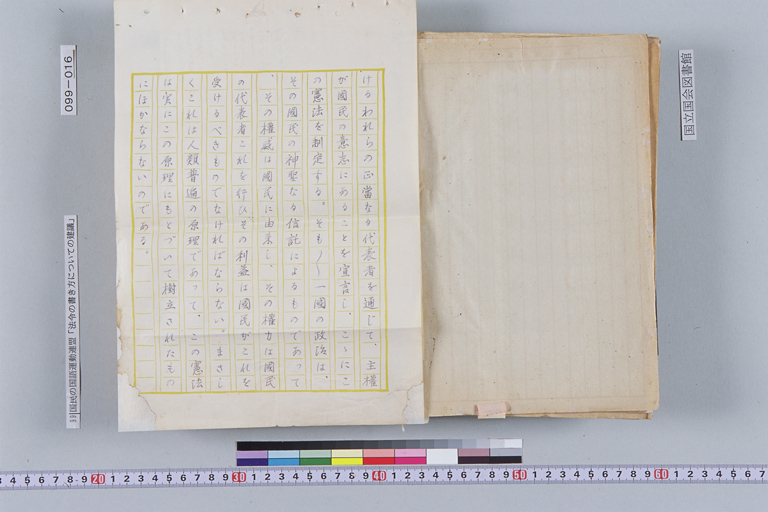 けるわれらの正當なる代表者を通じて、主權
が國民の意志にあることを宣言し、こゝにこ
の憲法を制定する。そも〳〵一國の政治は、
その國民の神聖なる信託によるものであつて
、その權威は國民に由来し、その權力は國民
の代表者これを行ひその利益は國民がこれを
受けるべきものでなければならない。まさし
くこれは人類普遍の原理であつて、この憲法
は実にこの原理にもとづいて樹立されたもの
にほかならないのである。
099-016
国民の国語運動連盟「法令の書き方についての建議」
国立国会図書館
3 4 5 6 7 8 9 20 1 2 3 4 5 6 7 8 9 30 1 2 3 4 5 6 7 8 9 40 1 2 3 4 5 6 7 8 9 50 1 2 3 4 5 6 7 8 9 60 1 2 3 4 5 6 7